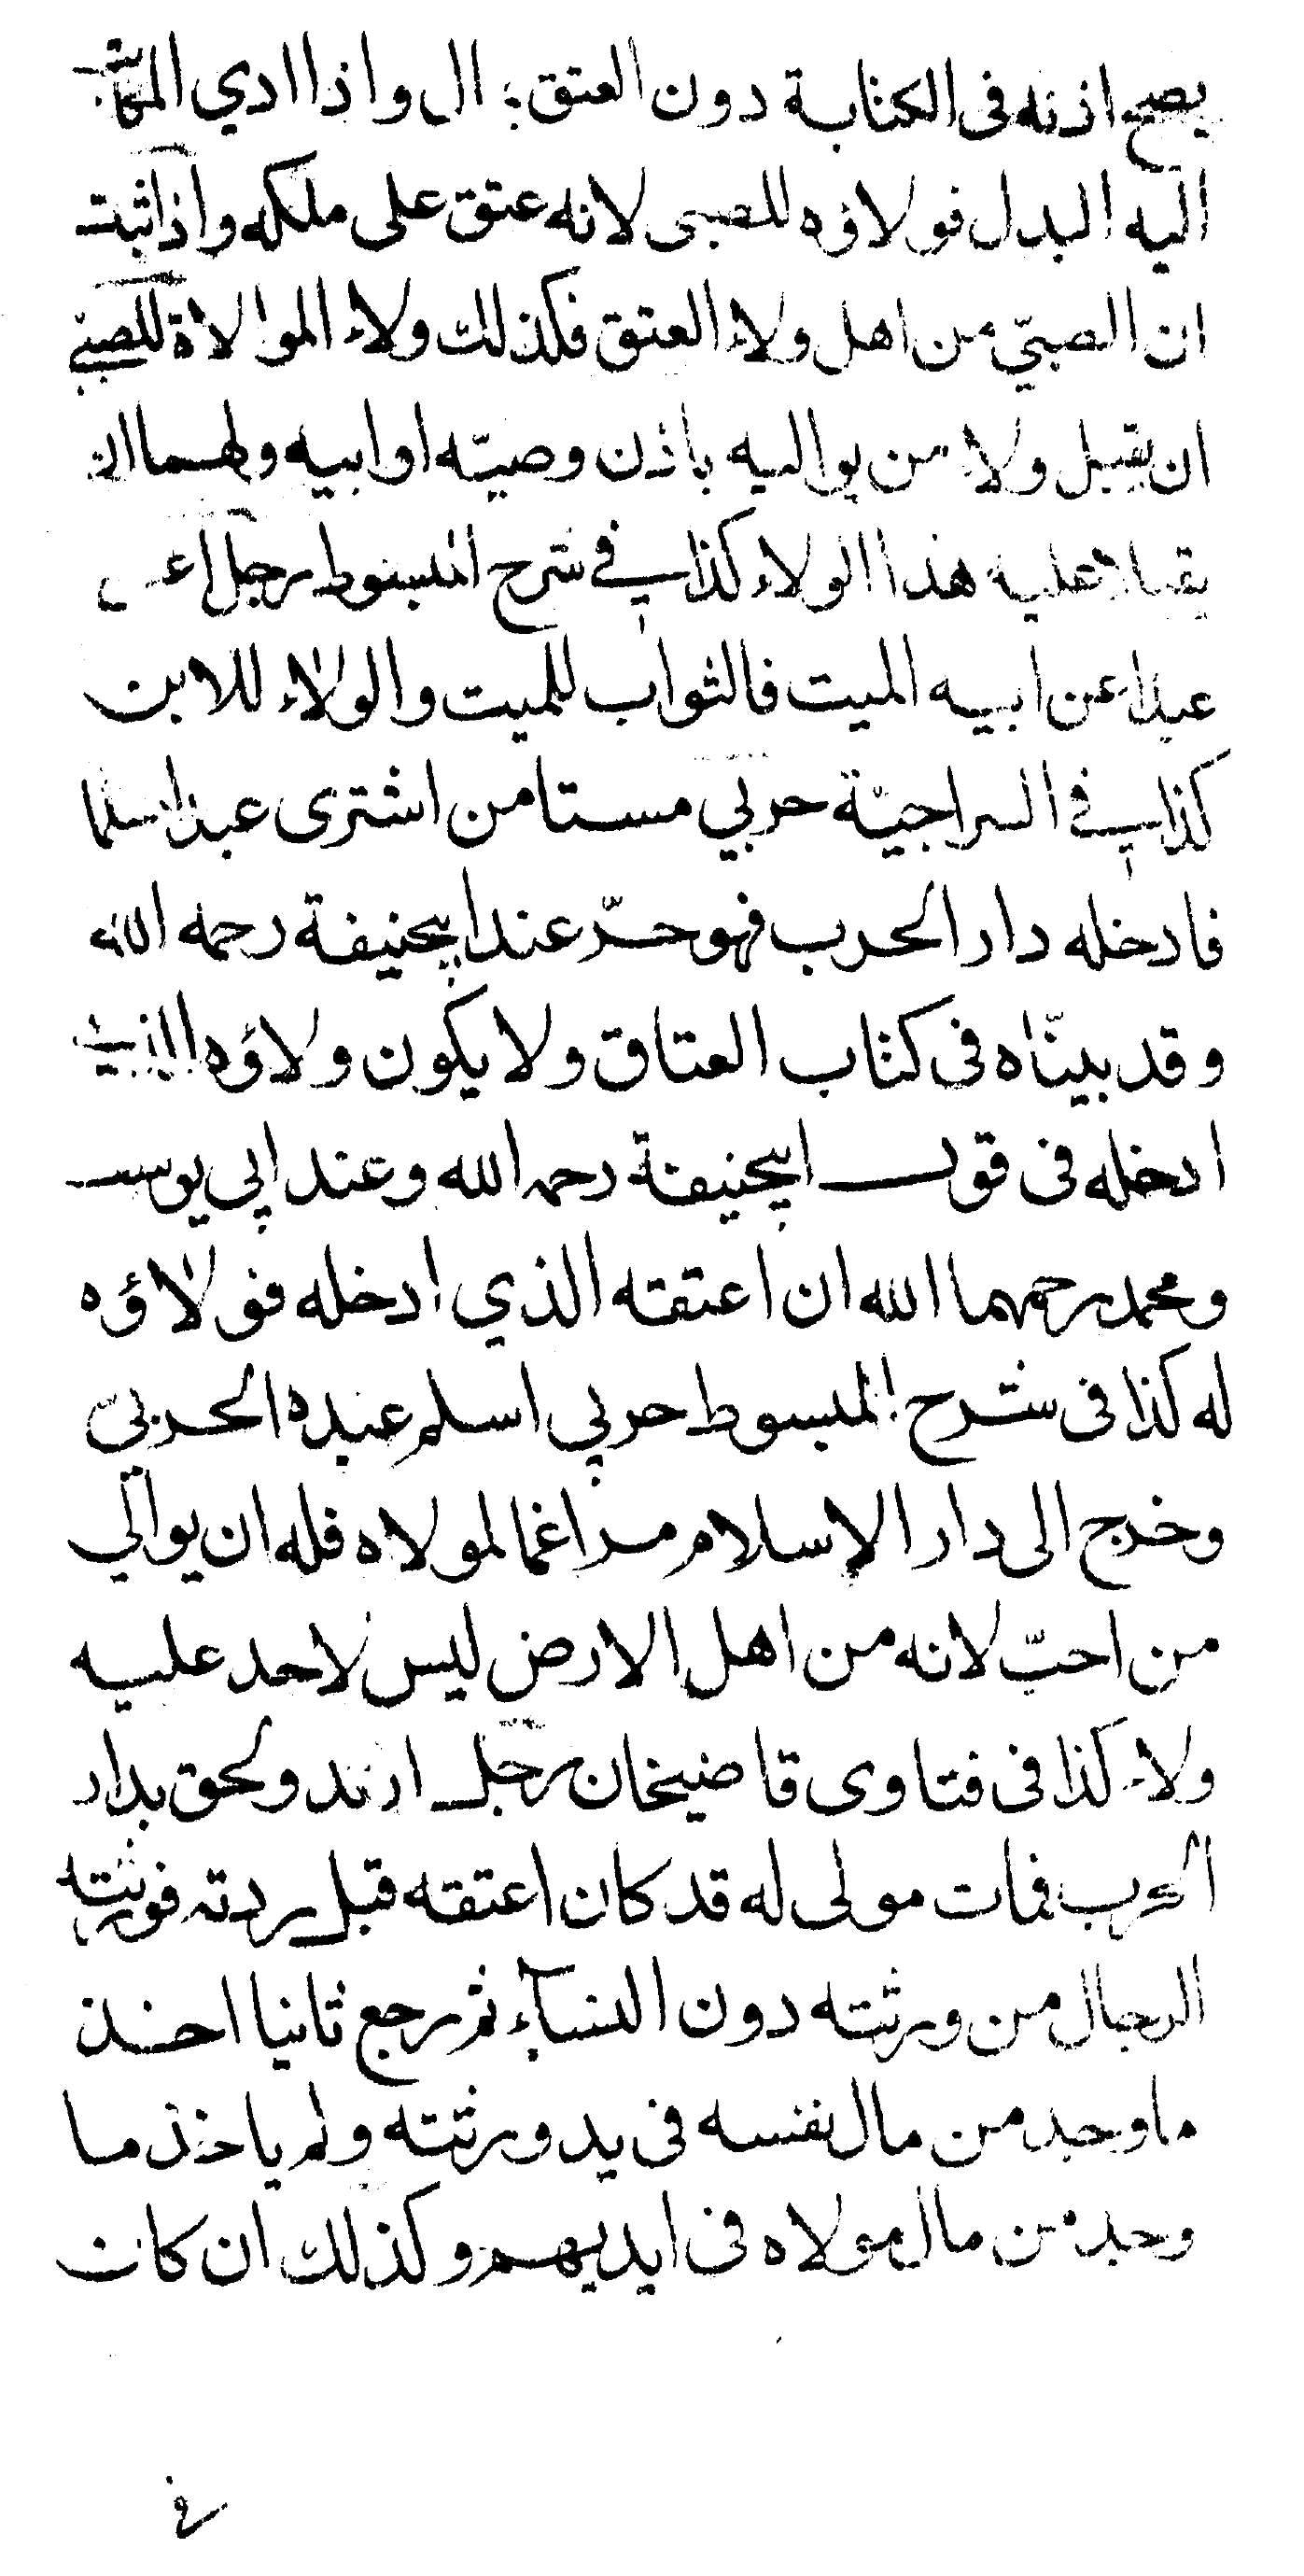 يصح اذنه فى الكتابة دون العتق بمال واذا ادي المكاتب
اليه البدل فولاؤه للصبى لانه عتق على ملكه واذا ثبت
ان الصبيّ من اهل ولاء العتق فكذلك ولاء الموالاة للصبي
ان يقبل ولاء من يواليه باذن وصيّه او ابيه ولهما ان
يقبلا عليه هذا الولاء كذا في شرح المبسوط رجل اعتق
عبدا عن ابيه الميت فالثواب للميت والولاء للابن
كذا في السراجيّة حربي مستامن اشترى عبدا مسلما
فادخله دار الحرب فهو حرّ عند ابيحنيفة رحمه الله
وقد بيناه فى كتاب العتاق ولا يكون ولاؤه للذي
ادخله فى قول ابيحنيفة رحمه الله وعند ابي يوسف
ومحمد رحمهما الله ان اعتقه الذي ادخله فولاؤه
له كذا فى شرح المبسوط حربي اسلم عبده الحربي
وخرج الى دار الاسلام مراغما لمولاه فله ان يوالي
من احبّ لانه من اهل الارض ليس لاحد عليه
ولاء كذا فى فتاوى قاضيخان رجل ارتد ولحق بدار
الحرب فمات مولى له قد كان اعتقه قبل ردته فورثته
الرجال من ورثته دون النساء ثم رجع ثانيا اخذ
ما وجد من مال نفسه فى يد ورثته ولم ياخذ ما
وجد من مال مولاه فى ايديهم وكذلك ان كانت
في